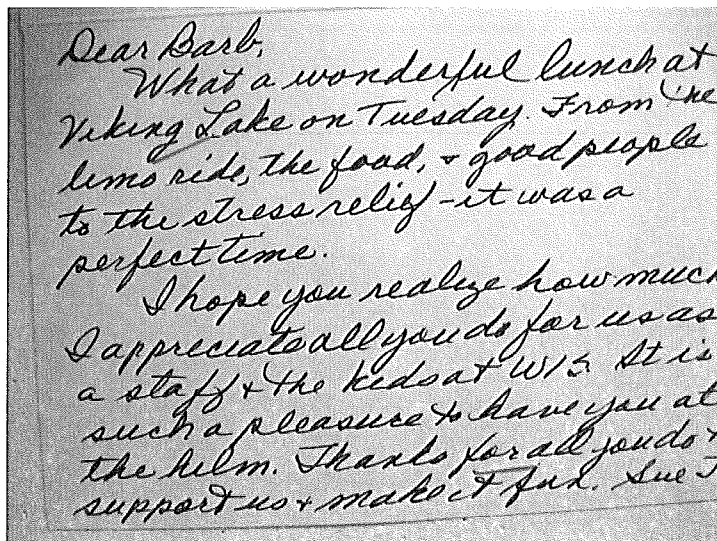 Dear Barb,
What a wonderful lunch at
Viking Lake on Tuesday. From the
limo ride, the food, + good people
to the stress relief - it was a
perfect time.
I hope you realize how much
I appreciate all you do for us as
a staff + the kids at WIS. It is
such a pleasure to have you at
the helm. Thanks for all you do +
support us + make it fun. Sue T